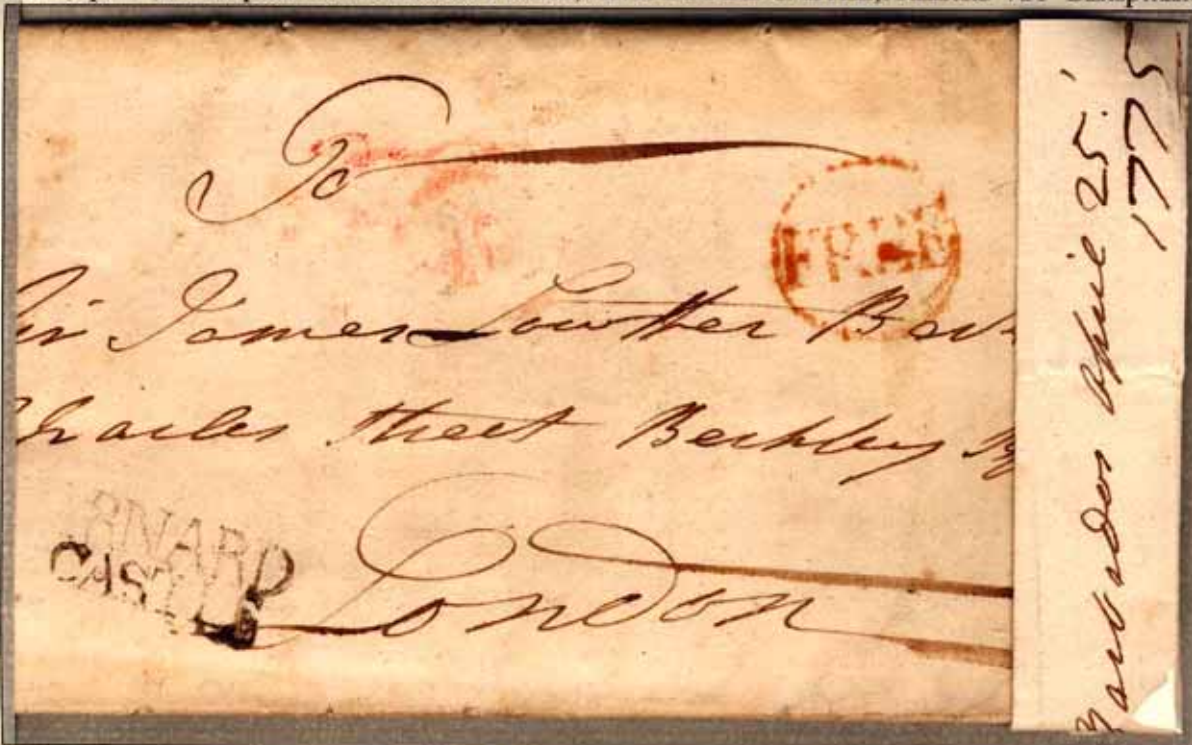 To
FREE
Sir James Lowther Bar
Charles Street Berkley Sq
BNARD
CASTLE
London
Barbados April 25
1775